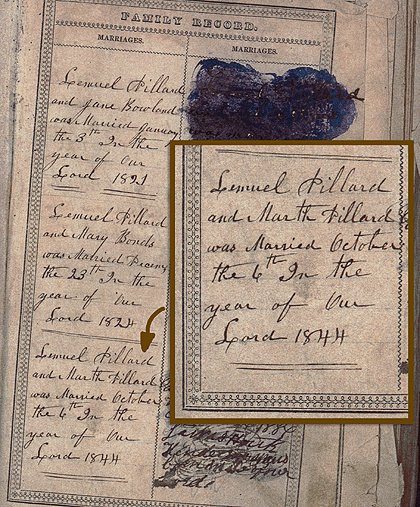 FAMILY RECORD.
MARRIAGES.
Lemuel Dillard
and Jane Bowland
was Married January
the 3th In the
year of Our
Lord 1821
Lemuel Dillard
and Mary Bonds
was Married
the 23th In the
year of Our
Lord 1824
Lemuel Dillard
and Marth Dillard
was Married October
the 6th In the
year of Our
Lord 1844
MARRIAGES.
Lemuel Dillard
and Marth Dillard
was Married October
the 6th In the
year of Our
Lord 1844